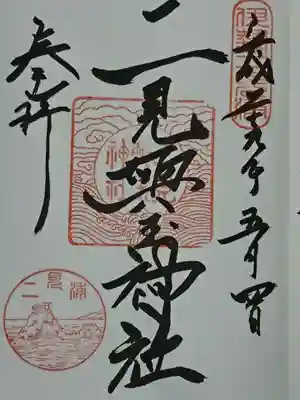 平成二十九年五月四日
二見興玉神社
奉拝
二見浦